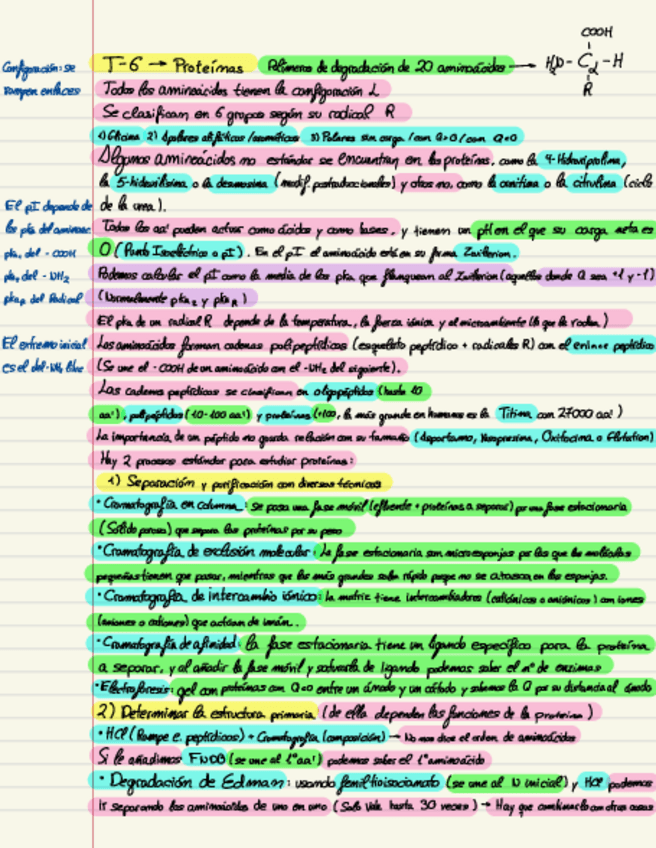 COOH
Configuración: se
rompen enlaces
T-6 → Proteínas Polímeros de degradación de 20 aminoácidos → H₂N - Cα - H
R
Todos los aminoácidos tienen la configuración L
Se clasifican en 6 grupos según su radical R
1) Glicina 2) Apolares alifáticos/aromáticos 3) Polares sin carga / con Q>0 / con Q<0
Algunos aminoácidos no estándar se encuentran en las proteínas, como la 4-Hidroxiprolina,
la 5-hidroxilisina o la desmosina (modif. postraduccionales) y otros no, como la ornitina o la citrulina (ciclo
de la urea).
El pI depende de
los pka del aminoac.
pka, del -COOH
pka, del -NH₂
pkaR del Radical
Todos los aa' pueden actuar como ácidos y como bases, y tienen un pH en el que su carga neta es
0 (Punto Isoeléctrico o pI). En el pI el aminoácido está en su forma Zwitterion.
Podemos calcular el pI como la media de los pka que flanquean al Zwitterion (aquellos donde Q sea +1 y -1)
(Normalmente pka₂ y pkaR)
El pka de un radical R depende de la temperatura, la fuerza iónica y el microambiente (lo que lo rodea)
El extremo inicial
es el del -NH₂ libre
Los aminoácidos forman cadenas polipeptídicas (esqueleto peptídico + radicales R) con el enlace peptídico
(Se une el -COOH de un aminoácido con el -NH₂ del siguiente).
Las cadenas peptídicas se clasifican en oligopéptidos (hasta 10
aa'), polipéptidos (10-100 aa') y proteínas (+100, la más grande en humanos es la Titina con 27000 aa')
La importancia de un péptido no guarda relación con su tamaño (Aspartamo, Vasopresina, Oxitocina o
Hay 2 procesos estándar para estudiar proteínas:
1) Separación y purificación con diversas técnicas
• Cromatografía en columna: Se pasa una fase móvil (efluente + proteínas a separar) por una fase estacionaria
(Sólido poroso) que separa las proteínas por su peso
• Cromatografía de exclusión molecular: La fase estacionaria son microesponjas por las que las moléculas
pequeñas tienen que pasar, mientras que las más grandes salen rápido porque no se atascan en las esponjas.
• Cromatografía de intercambio iónico: la matriz tiene intercambiadores (catiónicos o aniónicos) con iones
(aniones o cationes) que actúan de imán.
• Cromatografía de afinidad: la fase estacionaria tiene un ligando específico para la proteína
a separar, y al añadir la fase móvil y de ligando podemos saber el nº de enzimas
• Electroforesis: gel con proteínas con Q<0 entre un ánodo y un cátodo y sabemos la Q por su distancia al ánodo
2) Determinar la estructura primaria (de ella dependen las funciones de la proteína)
• HCl (Rompe e. peptídicos) + Cromatografía (composición) → No nos dice el orden de aminoácidos
Si le añadimos FNDB (se une al 1º aa') podemos saber el 1º aminoácido
• Degradación de Edman: usando feniltioisocianato (se une al N inicial) y HCl podemos
Ir separando los aminoácidos de uno en uno (Solo vale hasta 30 veces) → Hay que combinarlo con otras cosas